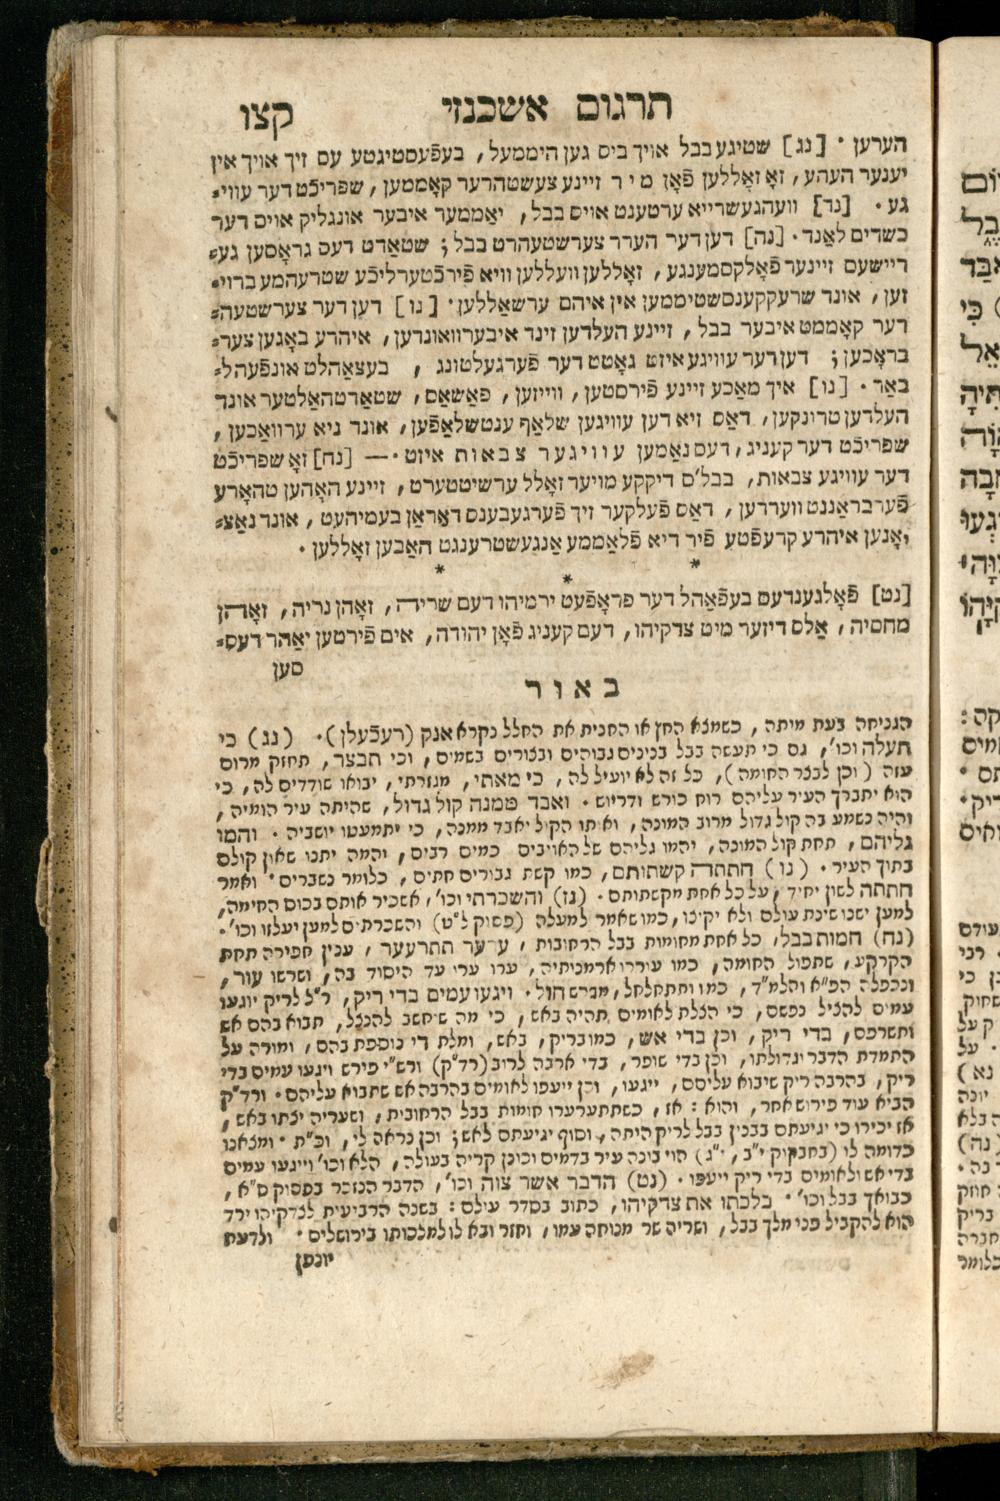 תרגום אשכנזי קצו
הערען · [נג] שטיגע בבל אויך ביס גען היממעל, בעפֿעסטיגטע עס זיך אויך אין
יענער העהע, זאָ זאָללען פֿאָן מיר זיינע צעשטהרער קאָממען, שפריכֿט דער עווי⸗
גע · [נד] וועהגעשרייא ערטענט אויס בבל, יאַממער איבער אונגליק אויס דער
כשדים לאַנד · [נה] דען דער הערר צערשטעהרט בבל; שטאָרט דעס גראָסען גע⸗
ריישעס זיינער פֿאָלקסמענגע, זאָללען וועללען וויא פֿירכֿטערליכֿע שטרעהמע ברוי⸗
זען, אונד שרעקקענסשטיממען אין איהם ערשאַללען · [נו] דען דער צערשטעה⸗
דער קאָממט איבער בבל, זיינע העלדען זינד איבערוואונדען, איהרע באָגען צער⸗
בראָכען; דען דער עוויגע איזט גאָטט דער פֿערגעלטונג, בעצאַהלט אונפֿעהל⸗
באַר · [נז] איך מאַכע זיינע פֿירסטען, ווייזען, פאַשאַס, שטאַדטהאַלטער אונד
העלדען טרונקען, דאַס זיא דען עוויגען שלאַף ענטשלאַפֿען, אונד ניא ערוואַכען,
שפריכֿט דער קעניג, דעס נאַמען עוויגער צבאות איזט · — [נח] זאָ שפריכֿט
דער עוויגע צבאות, בבל'ס דיקקע מויער זאָלל ערשיטטערט, זיינע האָהען טהאָרע
פֿערבראַננט ווערדען, דאַס פֿעלקער זיך פֿערגעבענס דאַראַן בעמיהעט, אונד נאַצ⸗
יאָנען איהרע קרעפֿטע פֿיר דיא פֿלאַממע אַנגעשטרענגט האַבען זאָללען ·
* * *
[נט] פֿאָלגענדעס בעפֿאַהל דער פראָפֿעט ירמיהו דעם שריה, זאָהן נריה, זאָהן
מחסיה, אַלס דיזער מיט צדקיהו, דעם קעניג פֿאָן יהודה, אים פֿירטען יאַהר דעס⸗
סען
באור
הגניחה בעת מיתה, כשמצא החץ או החנית את החלל נקרא אנק (רעכֿעלן) · (נג) כי
תעלה וכו', גם כי תעשה בבל בנינים גבוהים ובצורים בשמים, וכי תבצר, תחזק מרום
עזה (וכן לבצר החומה), כל זה לא יועיל לה, כי מאתי, מגזרתי, יבואו שודדים לה, כי
הוא יתברך העיר עליהם רוח כורש ודריוש · ואבד ממנה קול גדול, שהיתה עיר הומיה,
והיה נשמע בה קול גדול מרוב המונה, ואותו הקול יאבד ממנה, כי יתמעטו יושביה · והמו
גליהם, תחת קול המונה, יהמו גליהם של האויבים כמים רבים, והמה יתנו שאון קולם
בתוך העיר · (נו) חתתה קשתותם, כמו קשת גבורים חתים, כלומר נשברים · ואמר
חתתה לשון יחיד, על כל אחת מקשתותם · (נז) והשכרתי וכו', אשכיר אותם בכוס החימה,
למען ישנו שינת עולם ולא יקיצו, כמו שאמר למעלה (פסוק ל"ט) והשכרתים למען יעלזו וכו' ·
(נח) חמות בבל, כל אחת מחומות בבל הרחובות, ערער תתרעער, ענין חפירה תחת
הקרקע, שתפול החומה, כמו עוררו ארמנותיה, ערו ערו עד היסוד בה, ושרשו עור,
ונכפלה הפ"א והלמ"ד, כמו ותתחלחל, מברש חול · ויגעו עמים בדי ריק, ר"ל לריק יוגעו
עמים להציל נפשם, כי הצלת לאומים תהיה באש, כי מה שיחשב להנצל, תבוא בהם אש
ותשרפם, בדי ריק, וכן בדי אש, כמו בריק, באש, ומלת די נוספת בהם, ומורה על
התמדת הדבר וגדולתו, וכן בדי שופר, בדי ארבה לרוב (רד"ק) ורש"י פירש ויגעו עמים בדי
ריק, בהרבה ריק שיבוא עליהם, ייגעו, וכן ייעפו לאומים בהרבה אש שתבוא עליהם · ורד"ק
הביא עוד פירוש אחר, והוא: אז, כשתתערערו חומות בבל הרחובות, ושעריה יצתו באש,
אז יכירו כי יגיעתם בבנין בבל לריק היתה, וסוף יגיעתם לאש; וכן נראה לי, וכ"ת · ומצאנו
כדומה לו (בחבקוק י"ב, י"ג) הוי בונה עיר בדמים וכונן קריה בעולה, הלא וכו' וייגעו עמים
בדי אש ולאומים בדי ריק ייעפו · (נט) הדבר אשר צוה וכו', הדבר הנזכר בפסוק ס"א,
כבואך בבל וכו' · בלכתו את צדקיהו, כתוב בסדר עולם: בשנה הרביעית לצדקיהו ירד
הוא להקביל פני מלך בבל, ושריה שר מנוחה עמו, וחזר ובא לו למלכותו בירושלים · ולדעת
יונתן